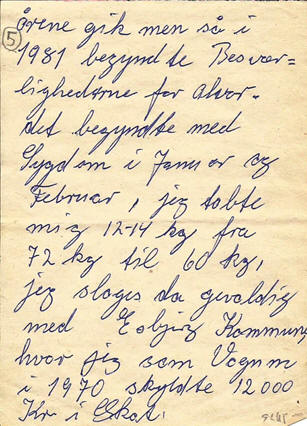 5
årene gik men så i
1981 begyndte Besvær=
lighederne for alvor.
det begyndte med
Sygdom i Januar og
Februar, jeg tabte
mig 12-14 kg fra
72 kg til 60 kg,
jeg sloges da gevaldig
med Esbjerg Kommune
hvor jeg som Vognm
i 1970 skyldte 12000
Kr i Skat.